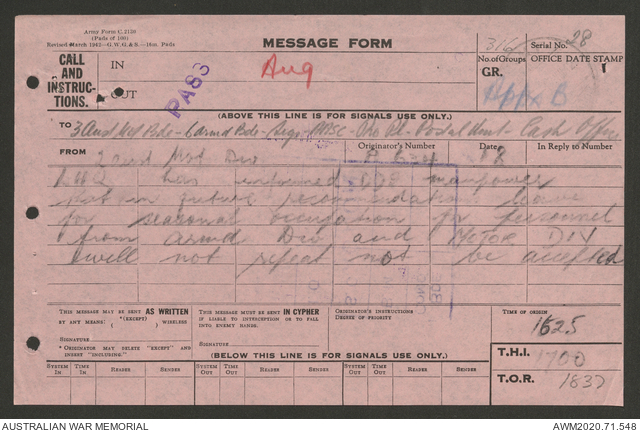 Army Form C.2130
(Pads of 100)
Revised March 1942—G.W.G.&S.—16m. Pads
MESSAGE FORM
Serial No. 28
CALL AND INSTRUCTIONS.
IN
OUT
Aug
PA83
316
No. of Groups
GR.
OFFICE DATE STAMP
Appx B
(ABOVE THIS LINE IS FOR SIGNALS USE ONLY.)
TO 3 Aust Mot Bde - 6 Armd Bde - Sigs - AASC - Pro Pl - Postal Unit - Cash Office
FROM 2 Aust Mot Div
Originator's Number
Date 18
In Reply to Number
LHQ has informed manpower
that in future recommendation leave
for seasonal occupation for personnel
from armd Div and MOTOR DIV
will not repeat not be accepted
THIS MESSAGE MAY BE SENT AS WRITTEN
BY ANY MEANS: ( *(EXCEPT) ) WIRELESS
SIGNATURE
* ORIGINATOR MAY DELETE "EXCEPT" AND
INSERT "INCLUDING."
THIS MESSAGE MUST BE SENT IN CYPHER
IF LIABLE TO INTERCEPTION OR TO FALL
INTO ENEMY HANDS.
SIGNATURE
ORIGINATOR'S INSTRUCTIONS
DEGREE OF PRIORITY
TIME OF ORIGIN
1625
(BELOW THIS LINE IS FOR SIGNALS USE ONLY.)
T.H.I. 1700
T.O.R. 1837
SYSTEM IN TIME IN READER SENDER SYSTEM OUT TIME OUT READER SENDER SYSTEM OUT TIME OUT READER SENDER
AUSTRALIAN WAR MEMORIAL
AWM2020.71.548